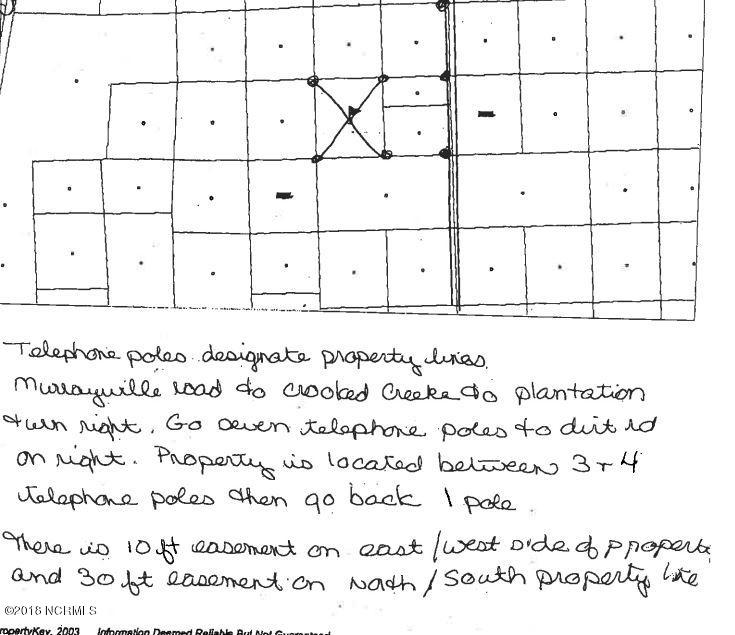 Telephone poles designate property lines.
Murrayville road to crooked Creeke to plantation
turn right. Go seven telephone poles to dirt rd
on right. Property is located between 3 + 4
telephone poles then go back 1 pole.
There is 10 ft easement on east/west side of property
and 30 ft easement on North/South property line
©2018 NCRMLS
ropertyKey, 2003 Information Deemed Reliable But Not Guaranteed